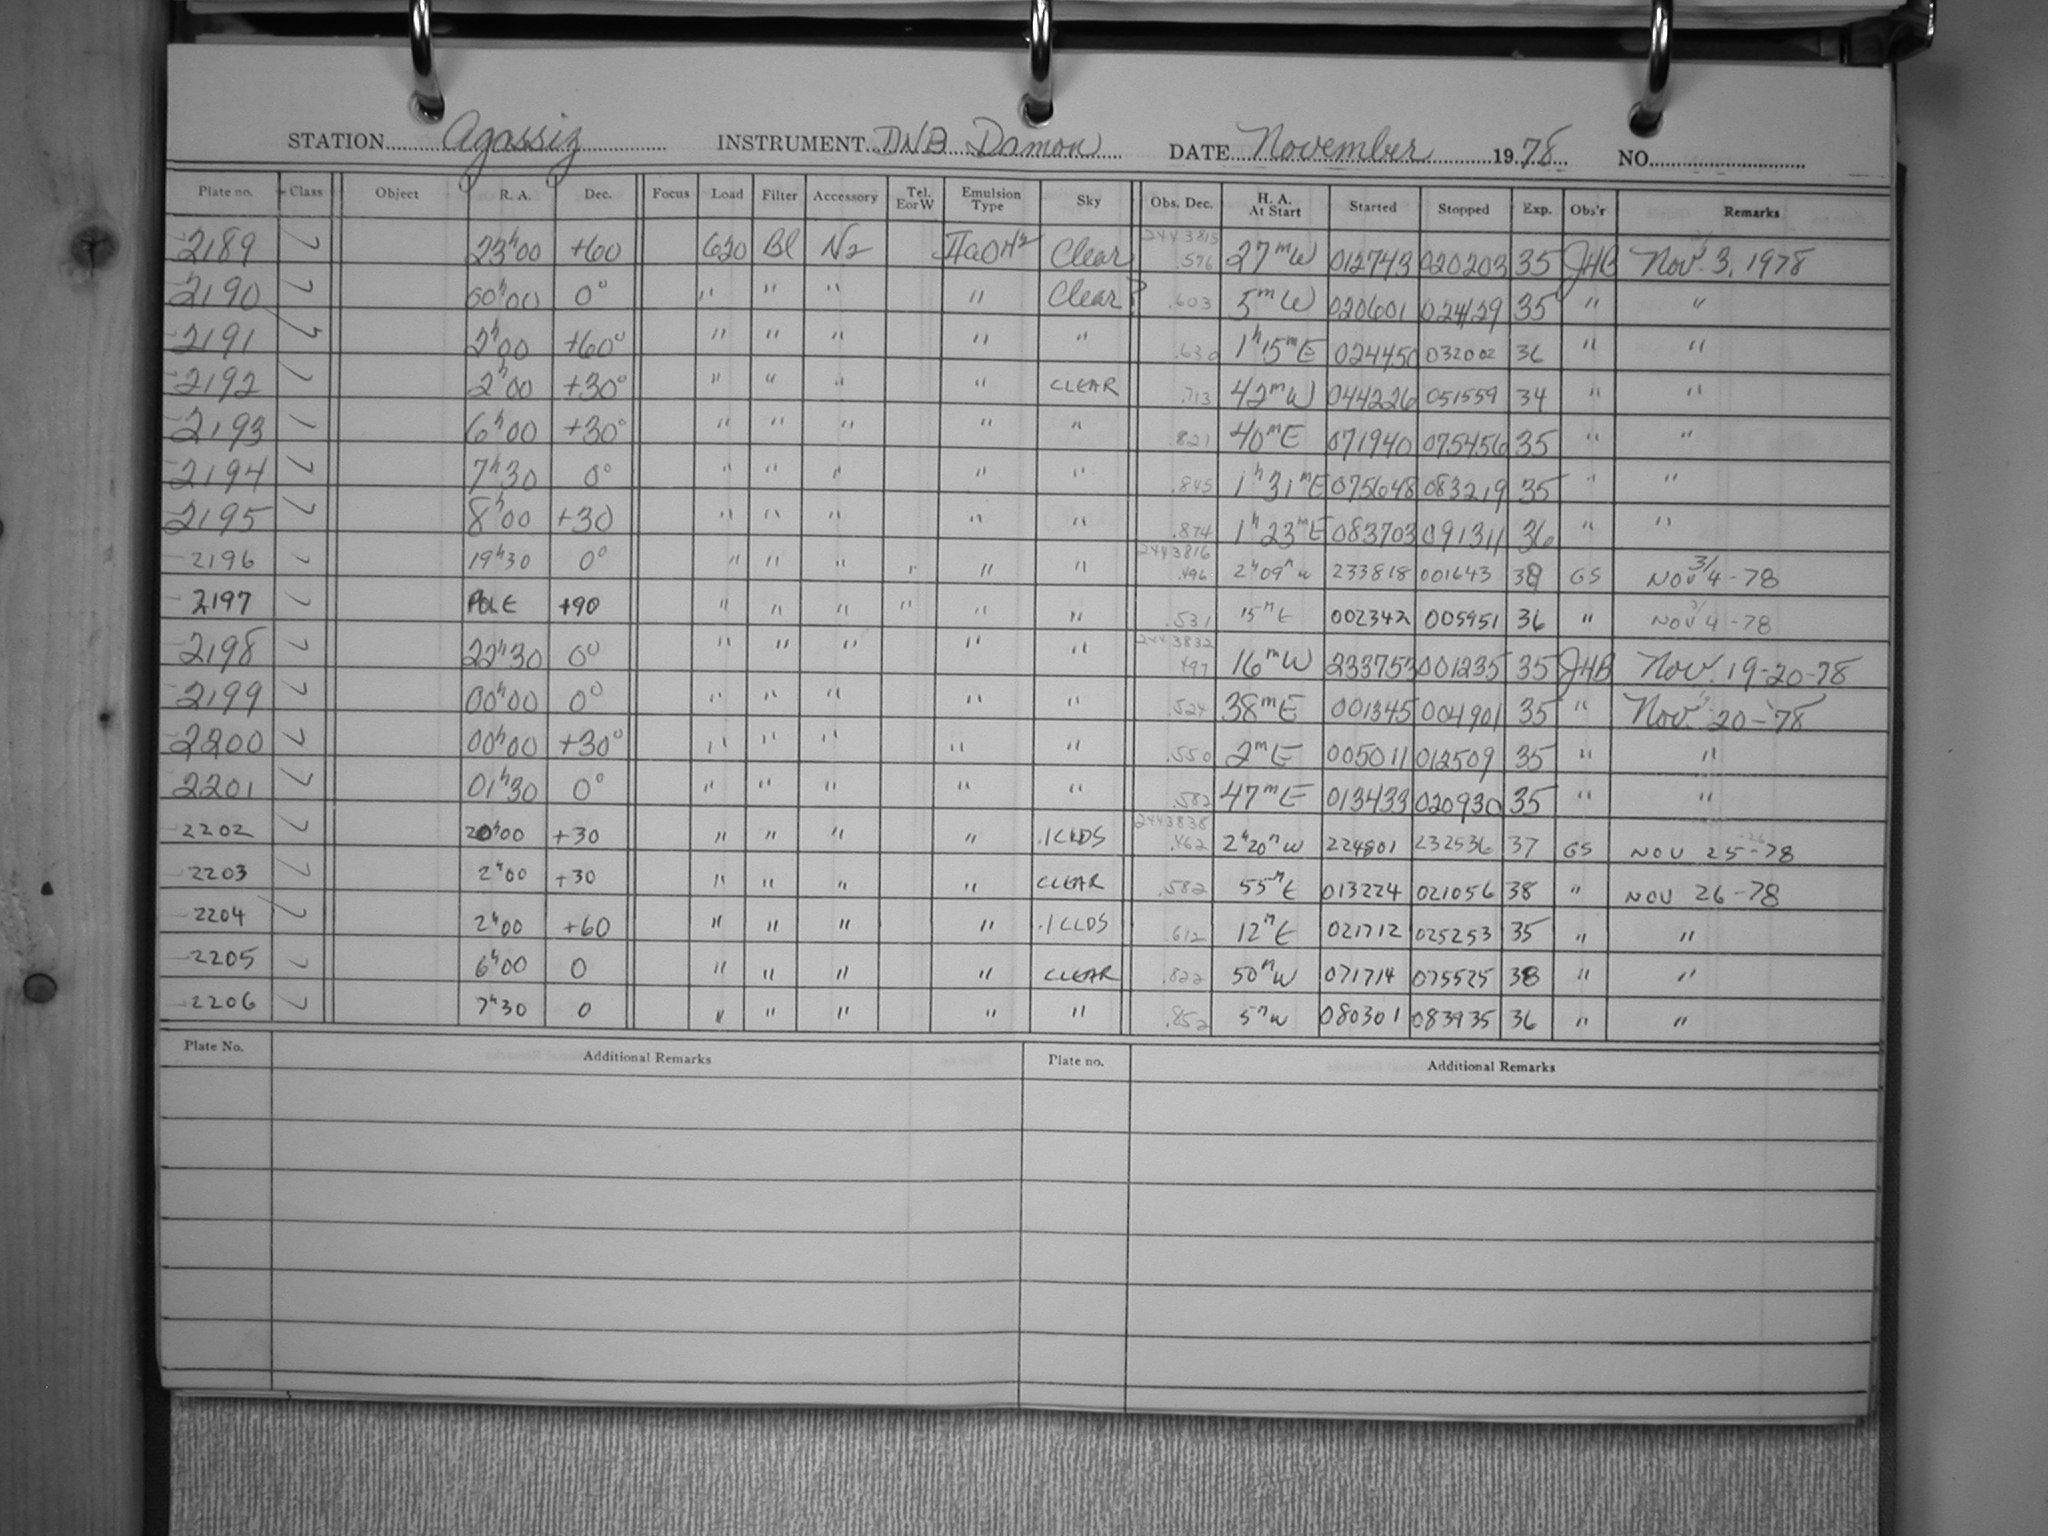 STATION Agassiz INSTRUMENT DNB Damon DATE November 1978 NO.
Plate no. Class Object R. A. Dec. Focus Load Filter Accessory Tel. E or W Emulsion Type Sky Obs. Dec. H. A. At Start Started Stopped Exp. Obs'r Remarks
2189 23h00 +60 620 Bl N2 IIaO Clear 2443815 .576 27mW 012743 020203 35 JHB Nov. 3, 1978
2190 00h00 0° " " " " Clear? .603 5mW 020601 024129 35 " "
2191 2h00 +60° " " " " " .630 1h15mE 024450 032002 36 " "
2192 2h00 +30° " " " " CLEAR .713 42mW 044226 051559 34 " "
2193 6h00 +30° " " " " " .821 40mE 071940 075456 35 " "
2194 7h30 0° " " " " " .845 1h31mE 075648 083219 35 " "
2195 8h00 +30 " " " " " .874 1h23mE 083703 091311 36 " "
2196 19h30 0° " " " " " " 2443816 .496 2h09mW 233818 001643 38 GS NOV 3/4-78
2197 POLE +90 " " " " " " .531 15mE 002342 005951 36 " NOV 4-78
2198 22h30 0° " " " " " 2443832 .497 16mW 233753 001235 35 JHB Nov. 19-20-78
2199 00h00 0° " " " " " .524 38mE 001345 004901 35 " Nov. 20-78
2200 00h00 +30° " " " " " .550 2mE 005011 012509 35 " "
2201 01h30 0° " " " " " .582 47mE 013433 020930 35 " "
2202 20h00 +30 " " " " .1 CLDS 2443838 .462 2h20mW 224801 232536 37 GS NOV 25-26-78
2203 2h00 +30 " " " " CLEAR .582 55mE 013224 021056 38 " NOV 26-78
2204 2h00 +60 " " " " .1 CLDS .612 12mE 021712 025253 35 " "
2205 6h00 0 " " " " CLEAR .822 50mW 071714 075525 38 " "
2206 7h30 0 " " " " " .852 5mW 080301 083935 36 " "
Plate No. Additional Remarks Plate no. Additional Remarks